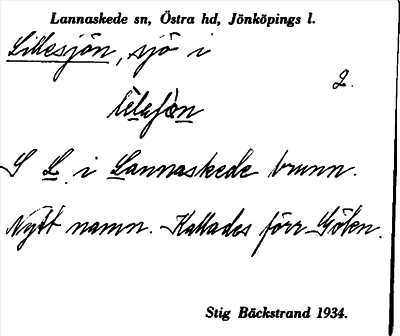 Lannaskede sn, Östra hd, Jönköpings l.
Lillesjön, sjö i
2.
S L i Lannaskede brunn.
Nytt namn. Kallades förr Gölen.
Stig Bäckstrand 1934.